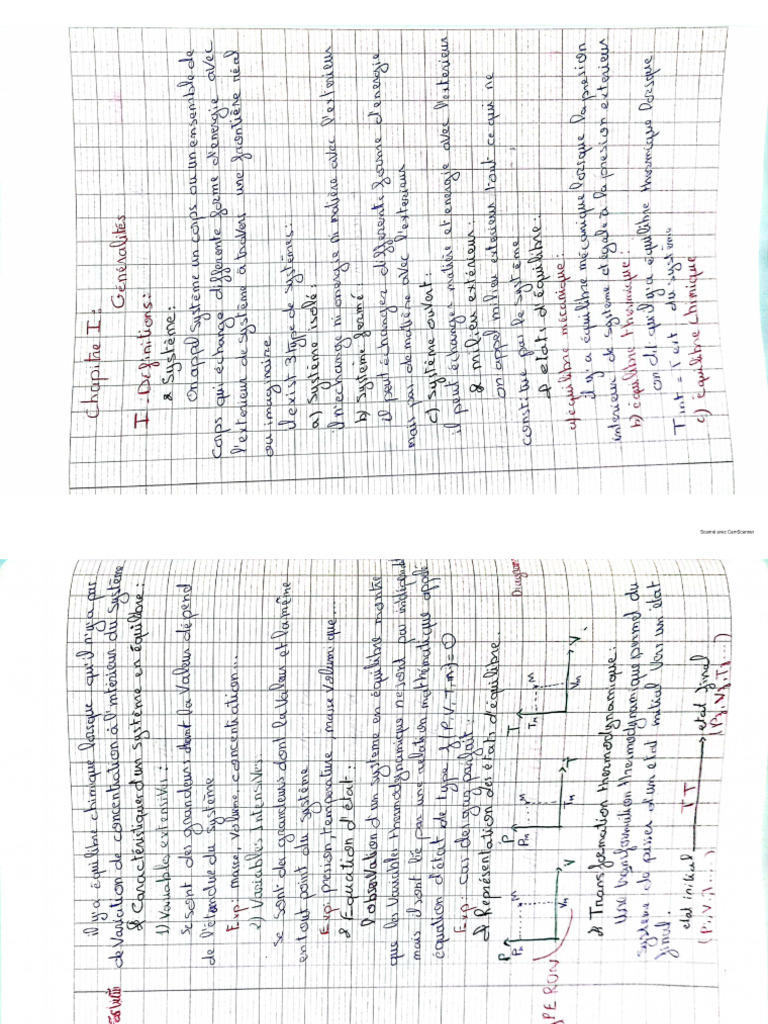 Chapitre I :
Généralités
I - Définitions :
* Système :
on appel système un corps ou un ensemble de
corps qui échange différente forme d'énergie avec
l'exterieur de système à travers une frontière réal
ou imaginaire
il exist 3 type de systèmes :
a) Système isolé :
il n'echange ni énergie ni matière avec l'exterieur
b) Système fermé
il peut échanger differente forme d'énergie
mais pas de matière avec l'exterieur
c) Système ouvert :
il peut échanger matière et energie avec l'exterieur
* milieu extérieur :
on appel milieu exterieur tout ce qui ne
constitue pas le système
* etats d'équilibre :
a) équilibre mécanique :
il y a équilibre mécanique lorsque la presion
interieur de système et égale à la presion exterieur
b) équilibre thermique :
on dit qu'il y a équilibre thermique lorsque
T int = T ext du système
c) équilibre chimique
Scanné avec CamScanner
il y a équilibre chimique lorsque qu'il n'y a pas
de variation de concentration à l'interieur du Système
* Caractéristique d'un système en équilibre :
1) Variables extensives :
se sont des grandeurs dont la Valeur dépend
de l'étendue du Système
Exp : masse, Volume, concentration...
2) Variables Intensives
se sont des grandeurs dont la Valeur et la même
en tout point du système
Exp : presion, température, masse Volumique...
* Equation d'état :
l'observation d'un système en équilibre montre
que les variables thermodynamique ne sont pas indépend
mais il sont lié par une relation mathématique appelé
équation d'état de type f(P, V, T, n) = 0
Exp : Cas des gaz parfait :
* Représentation des états d'équilibre.
Diagram
P
P
T
M
M
M
V
T
V
PERON
* Transformation thermodynamique :
Une transformation thermodynamique permet du
système de passer d'un etat initial Vers un état
final.
etat initial
TT
etat final